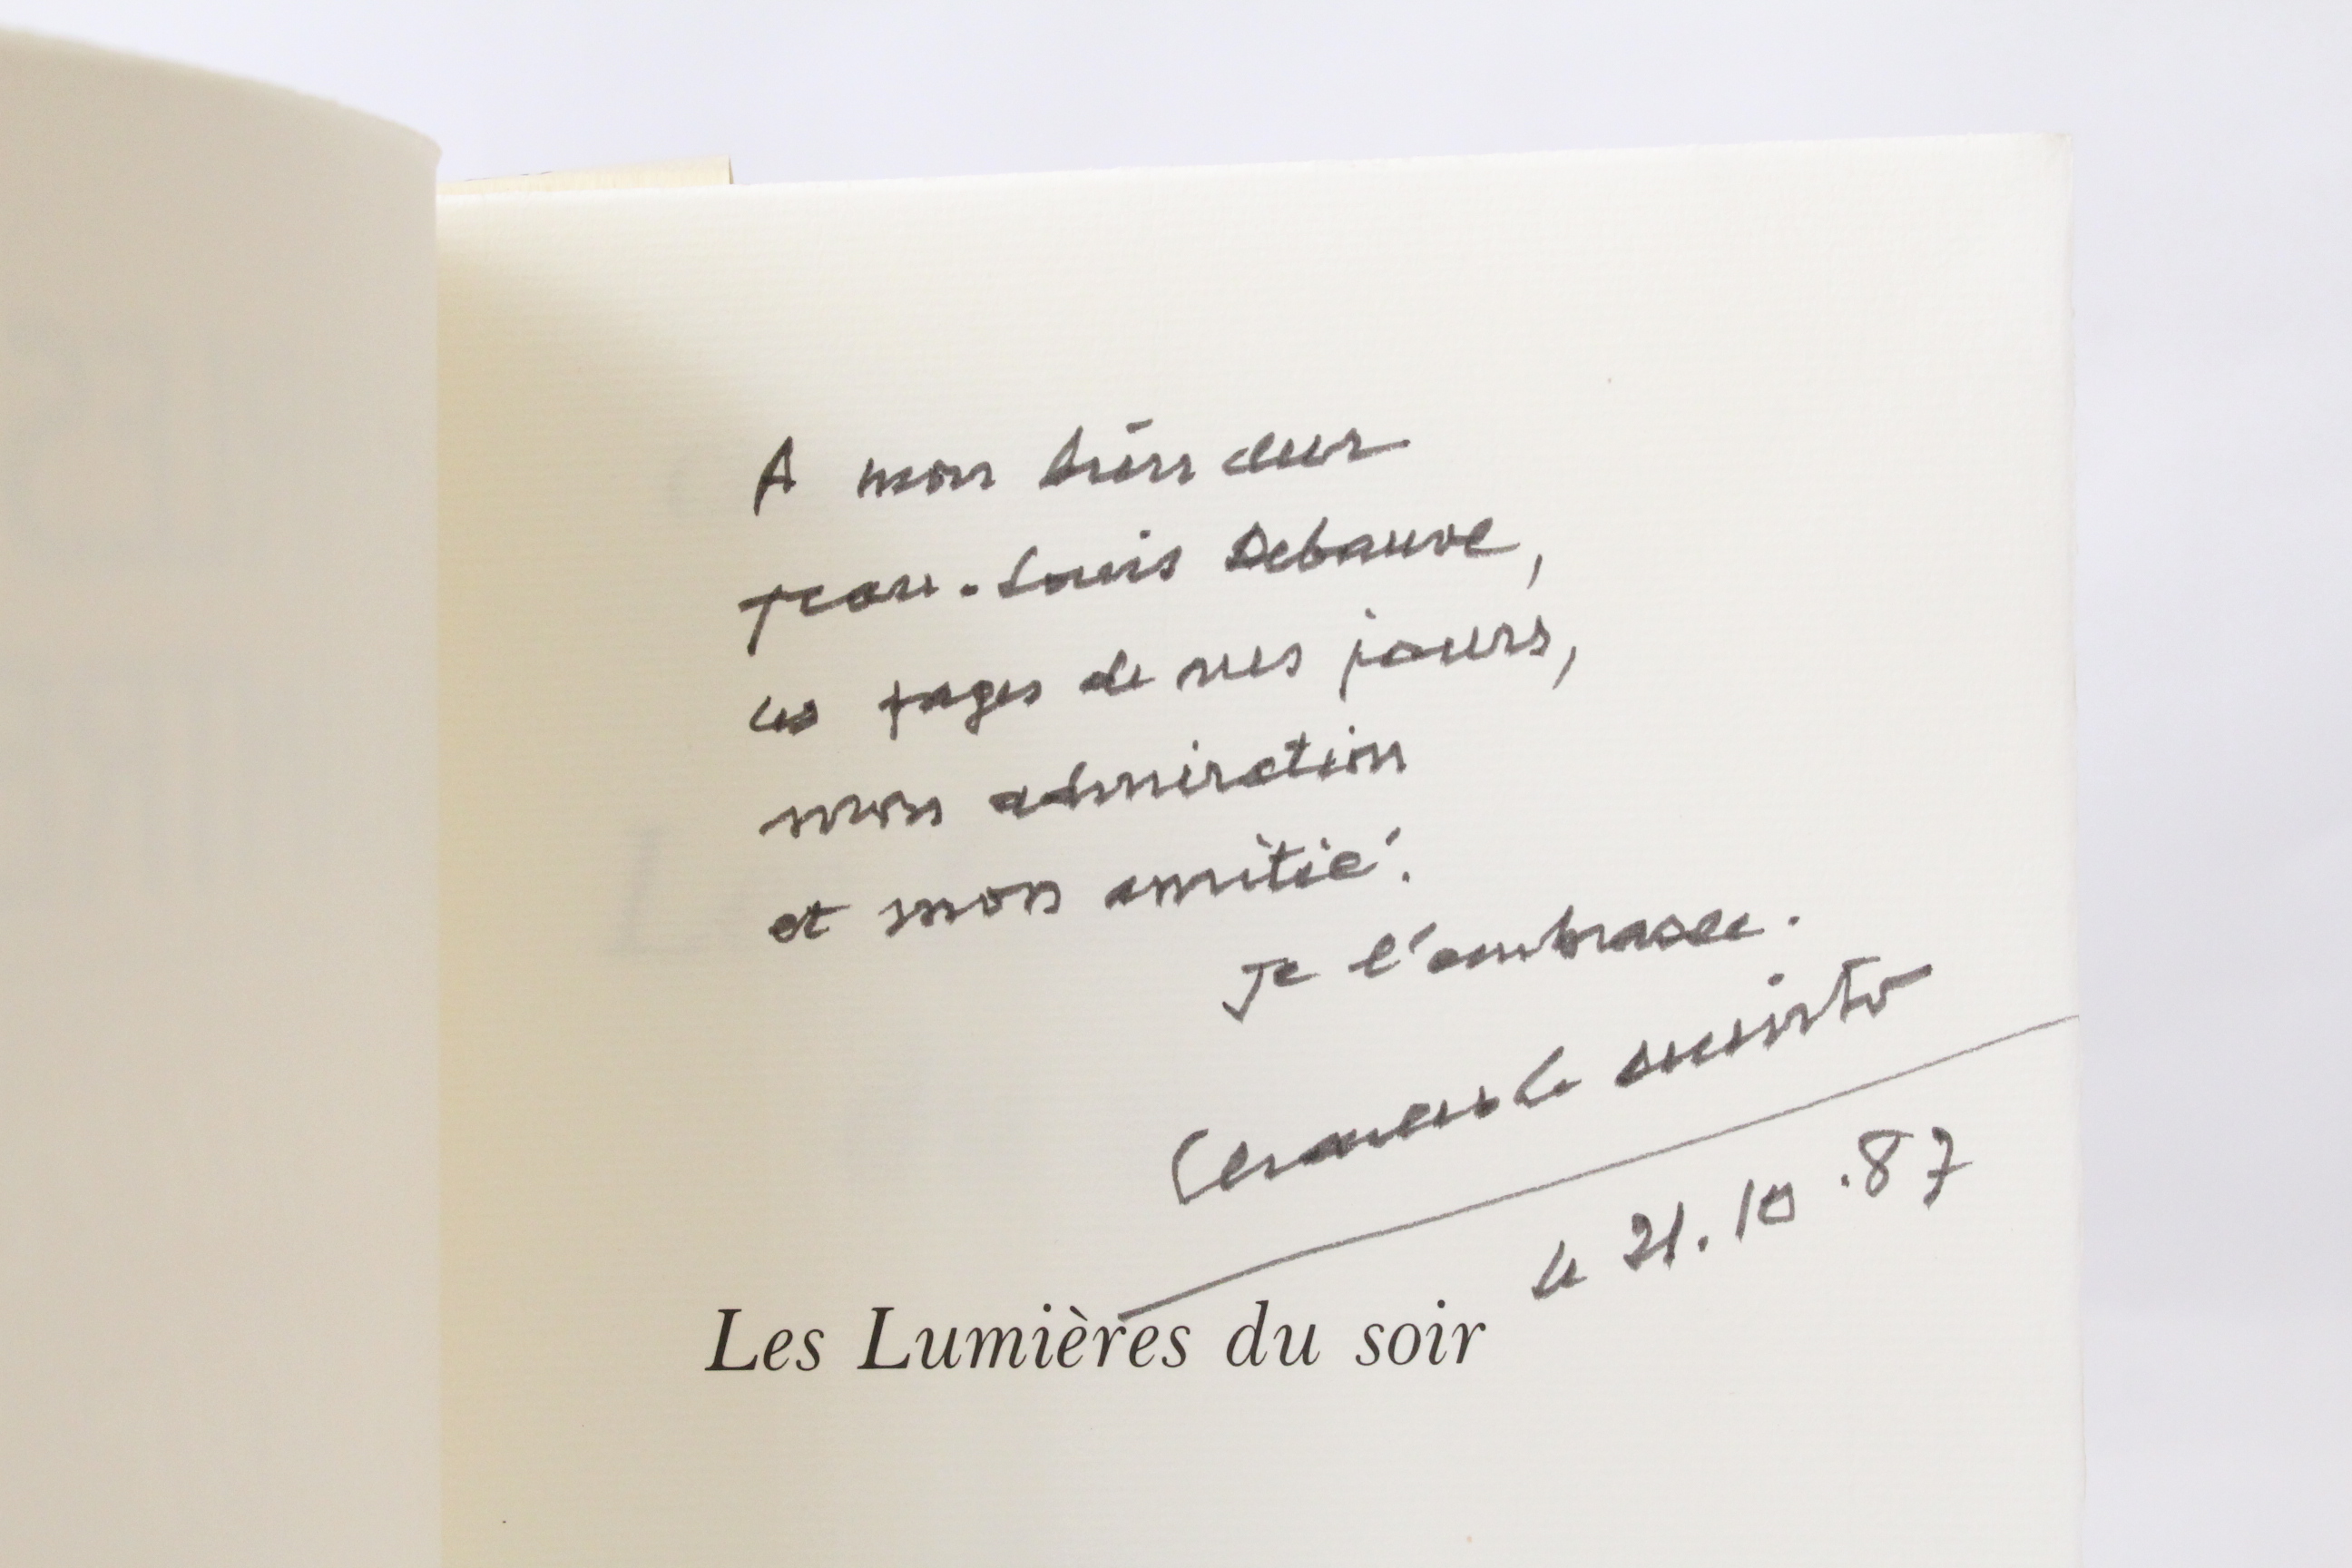 A mon bien cher
Jean-Louis Debauve,
ces pages de mes jours,
mon admiration
et mon amitié.
Je l'embrasse.
Charles Le Quintrec
le 21.10.87
Les Lumières du soir